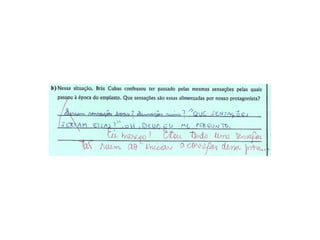 b) Nessa situação, Brás Cubas confessou ter passado pelas mesmas sensações pelas quais
passou à época do emplasto. Que sensações são essas alimentadas por nosso protagonista?
sensações boas? Sensações ruins? "QUE SENSAÇÕES
SERIAM ESSAS!", OH DEUS EU ME PERGUNTO.
Eu mereço! Estou tendo uma sensação
tão ruim ao iniciar a correção dessa prova...